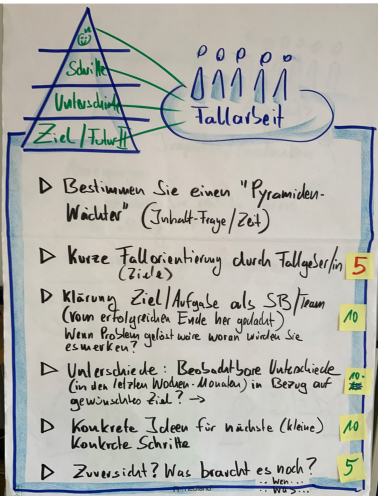 Schritte
Unterschiede
Ziel/Futur II
Fallarbeit
▷ Bestimmen Sie einen "Pyramiden-
Wächter" (Inhalt-Frage/Zeit)
▷ Kurze Fallorientierung durch Fallgeber/in 5
(Ziele)
▷ Klärung Ziel/Aufgabe als SB/Team
(vom erfolgreichen Ende her gedacht) 10
Wenn Problem gelöst wäre woran würden Sie
es merken?
▷ Unterschiede: Beobachtbare Unterschiede 10-
(in den letzten Wochen-Monaten) in Bezug auf
gewünschtes Ziel? →
▷ Konkrete Ideen für nächste (kleine) 10
Konkrete Schritte
▷ Zuversicht? Was braucht es noch? 5
.. wen...
.. Was...